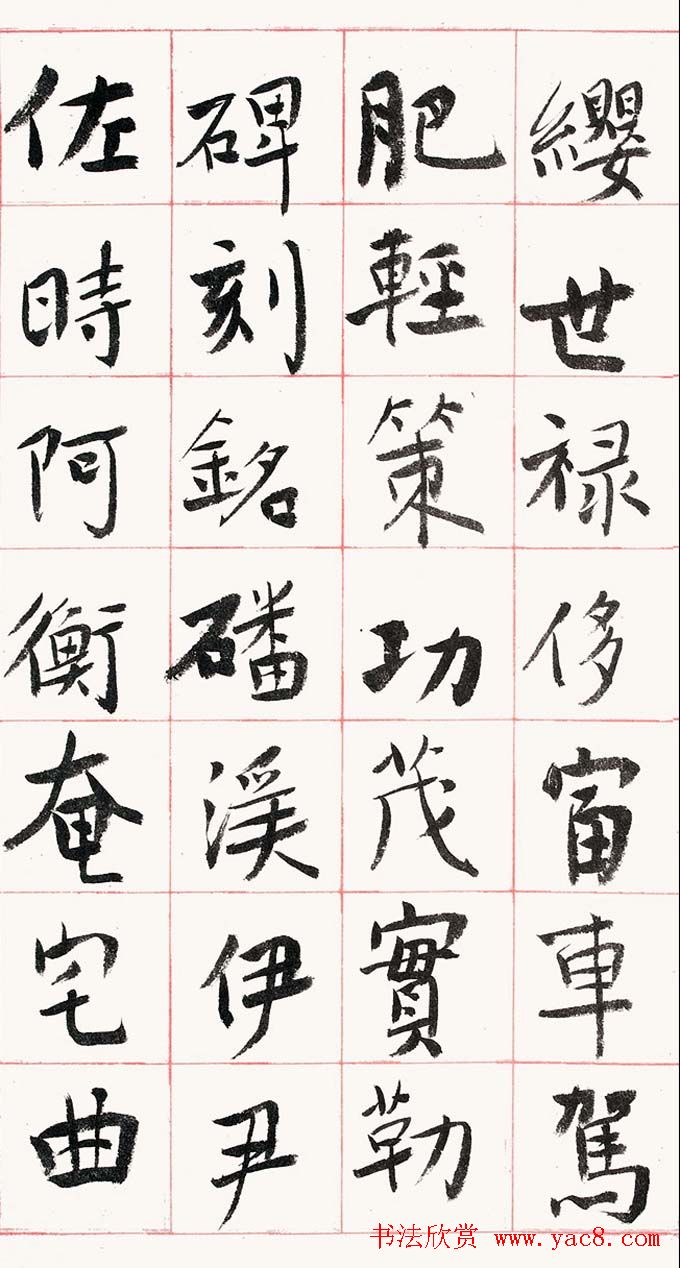 纓世禄侈富車駕
肥輕策功茂實勒
碑刻銘磻溪伊尹
佐時阿衡奄宅曲
书法欣赏 www.yac8.com